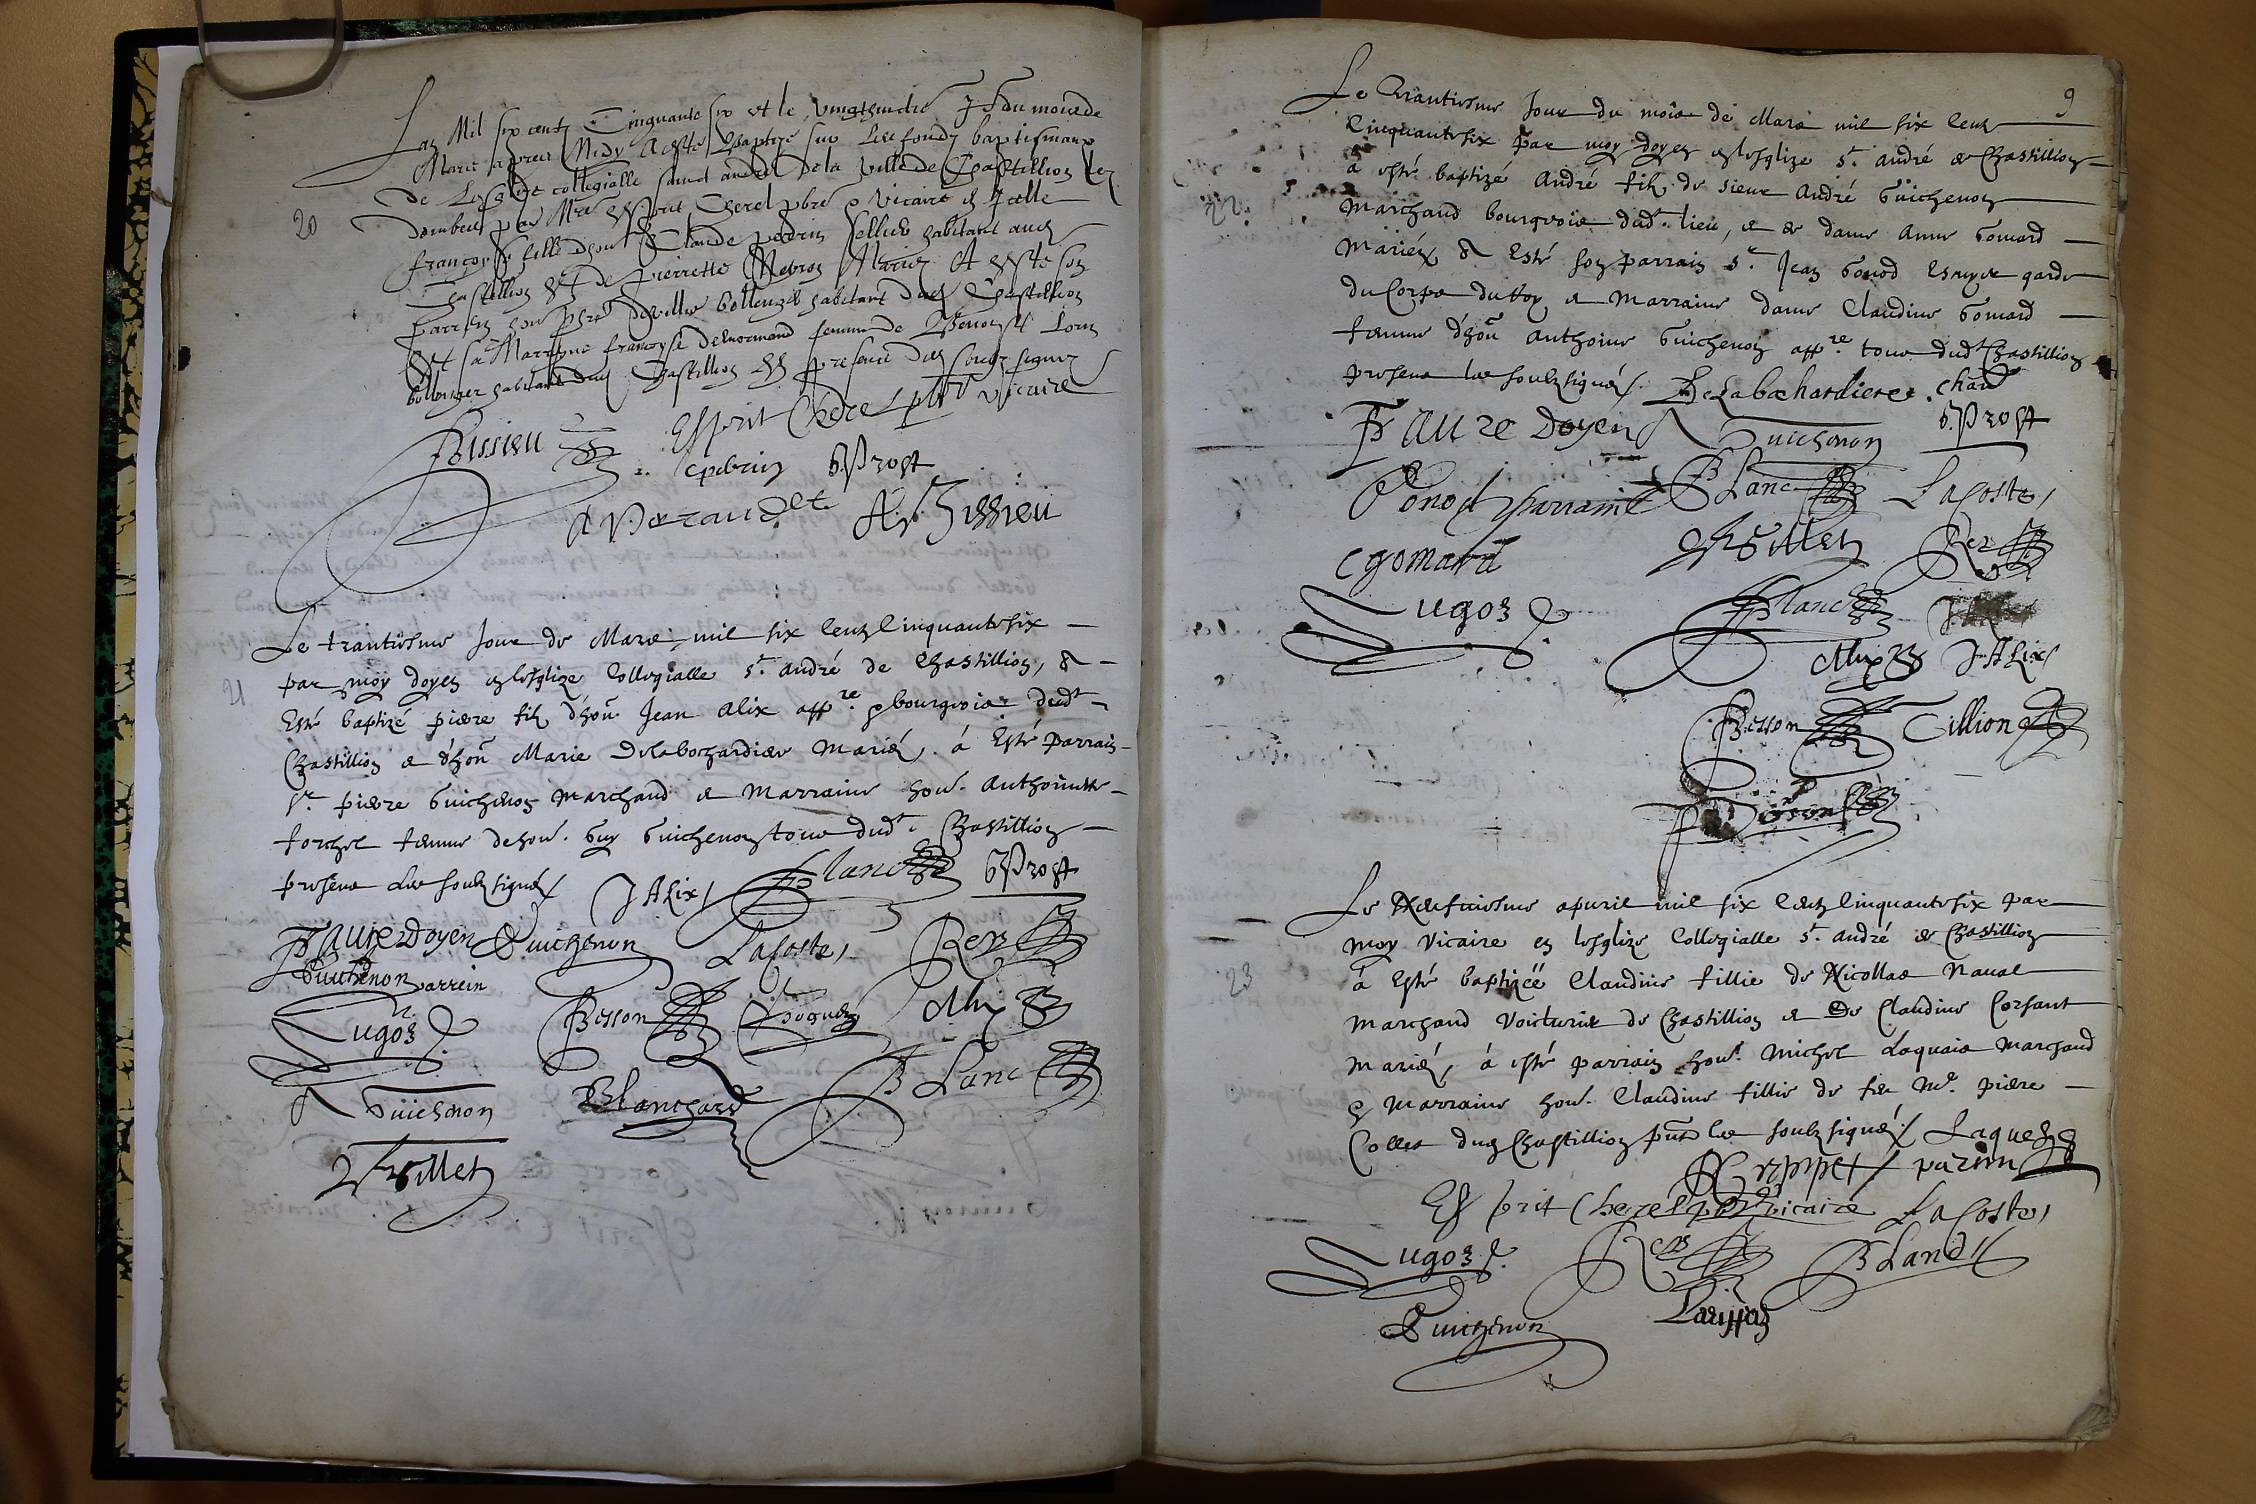 20
Lan Mil six centz Cinquante six et le vingthuictie Jo du mois de
Mars apres Midy A este baptize sur les fondz baptismaux
de Leglize collegialle sainct andre de la ville de Chastillion lez
dombes par Mre Esprit Cherel pbre & vicaire en Icelle
françoyse fille dhon Claude perrin sellier habitant aud
Chastillion Et de Pierrette Mariez Et este son
Parrin hon bollengier habitant dud Chastillion
Et sa Marrayne françoyse femme de Benoist
bollenger habitant dud Chastillion En presence des soubz signez
Bissieu Esprit Cherel pbr vicaire
cperrin G Prost
A Peraudet A. Bissieu
21
Le trantiesme Jour de Mars mil six centz Cinquante six
par moy doyen en lesglize Collegialle St. andré de Chastillion, a
Esté baptizé piere filz d'hon Jean Alix appre. & bourgeois dudt
Chastillion & d'hon Marie Delabochardiere Mariéz. á Esté parrain
sr. piere Guichenon Marchand & Marraine hon. Anthoinette
torchel femme de hon. Guy Guichenon tous dudt. Chastillion
presens Les soubz signéz
J ALix Planch G Prost
Faure Doyen Guichenon LaCoste Rey
Guichenon parrein
Lugoz Besson Alix
Guichenon Blanchard B Lanc
9
22
Le Trantiesme Jour du mois de Mars mil six centz
Cinquante six Par moy doyen en lesglize St. andré de Chastillion
à esté baptizé André filz de sieur André Guichenon
Marchand bourgeois dudt. lieu, & de dame Anne Gomard
Mariéz a Esté son parrain sr. Jean Gonod Escuyer garde
du Corps du Roy & Marraine dame Claudine Gomard
femme d'hon Anthoine Guichenon appre tous dudt Chastillion
presens les soubz signéz. Delabochardiere. chan
Faure Doyen Guichenon G. Prost
Gonod parrain B Lanc LaCoste
C gomard Rey
Lugoz Planch
Alix J ALix
Besson Cillion
23
Le Neufviesme apvril mil six Centz Cinquante six par
moy Vicaire en lesglize Collegialle St. andré de Chastillion
à Esté baptizée Claudine fillie de Nicollas Naval
Marchand Voiturier de Chastillion & de Claudine Corsant
Mariéz, á esté parrain hon. Michel Laquais Marchand
& Marraine hon. Claudine fillie de feu Me. piere
Collet dud Chastillion pnt les soubz signéz
parrin
Esprit Cherel pbr vicaire LaCoste
Lugoz Rey B Land
Guichenon